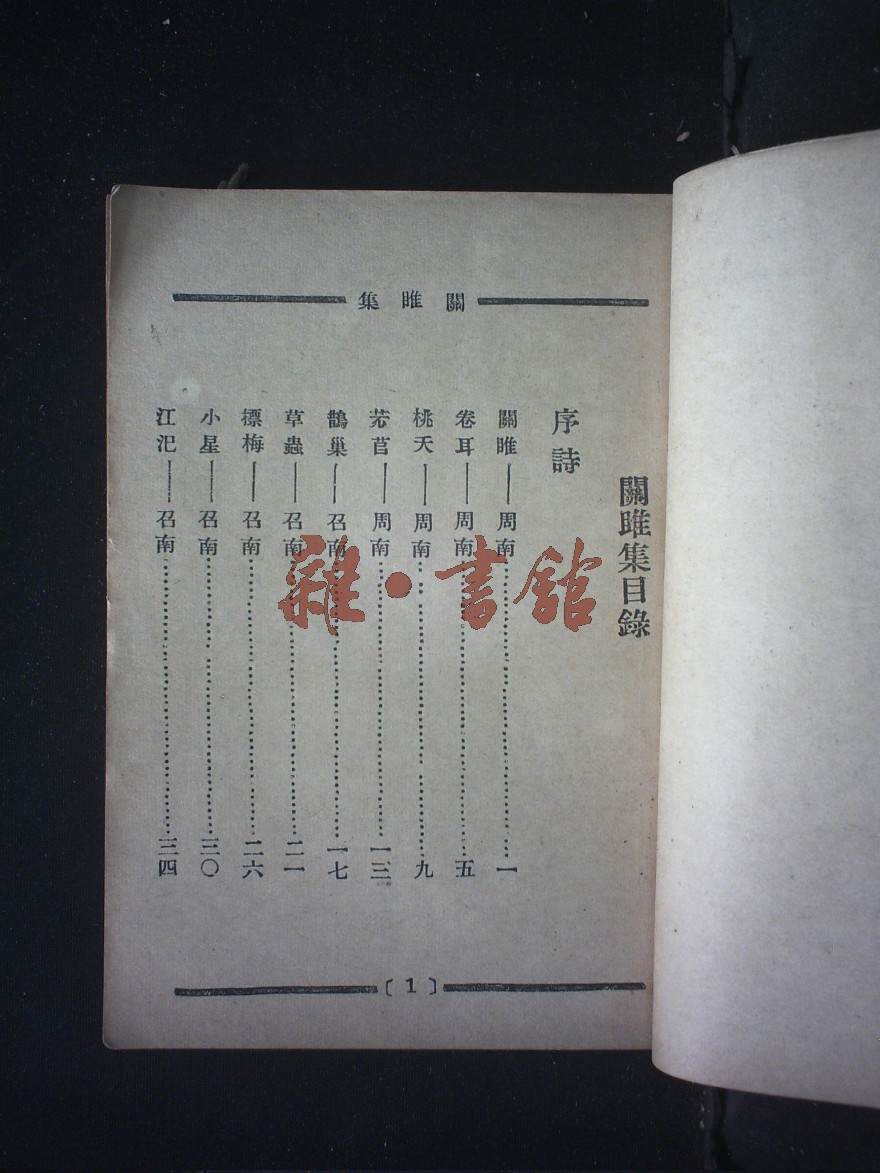 關雎集
關雎集目錄
序詩
關雎——周南……一
卷耳——周南……五
桃夭——周南……九
芣苢——周南……一三
鵲巢——召南……一七
草蟲——召南……二一
摽梅——召南……二六
小星——召南……三〇
江汜——召南……三四
〔1〕
雜·書館